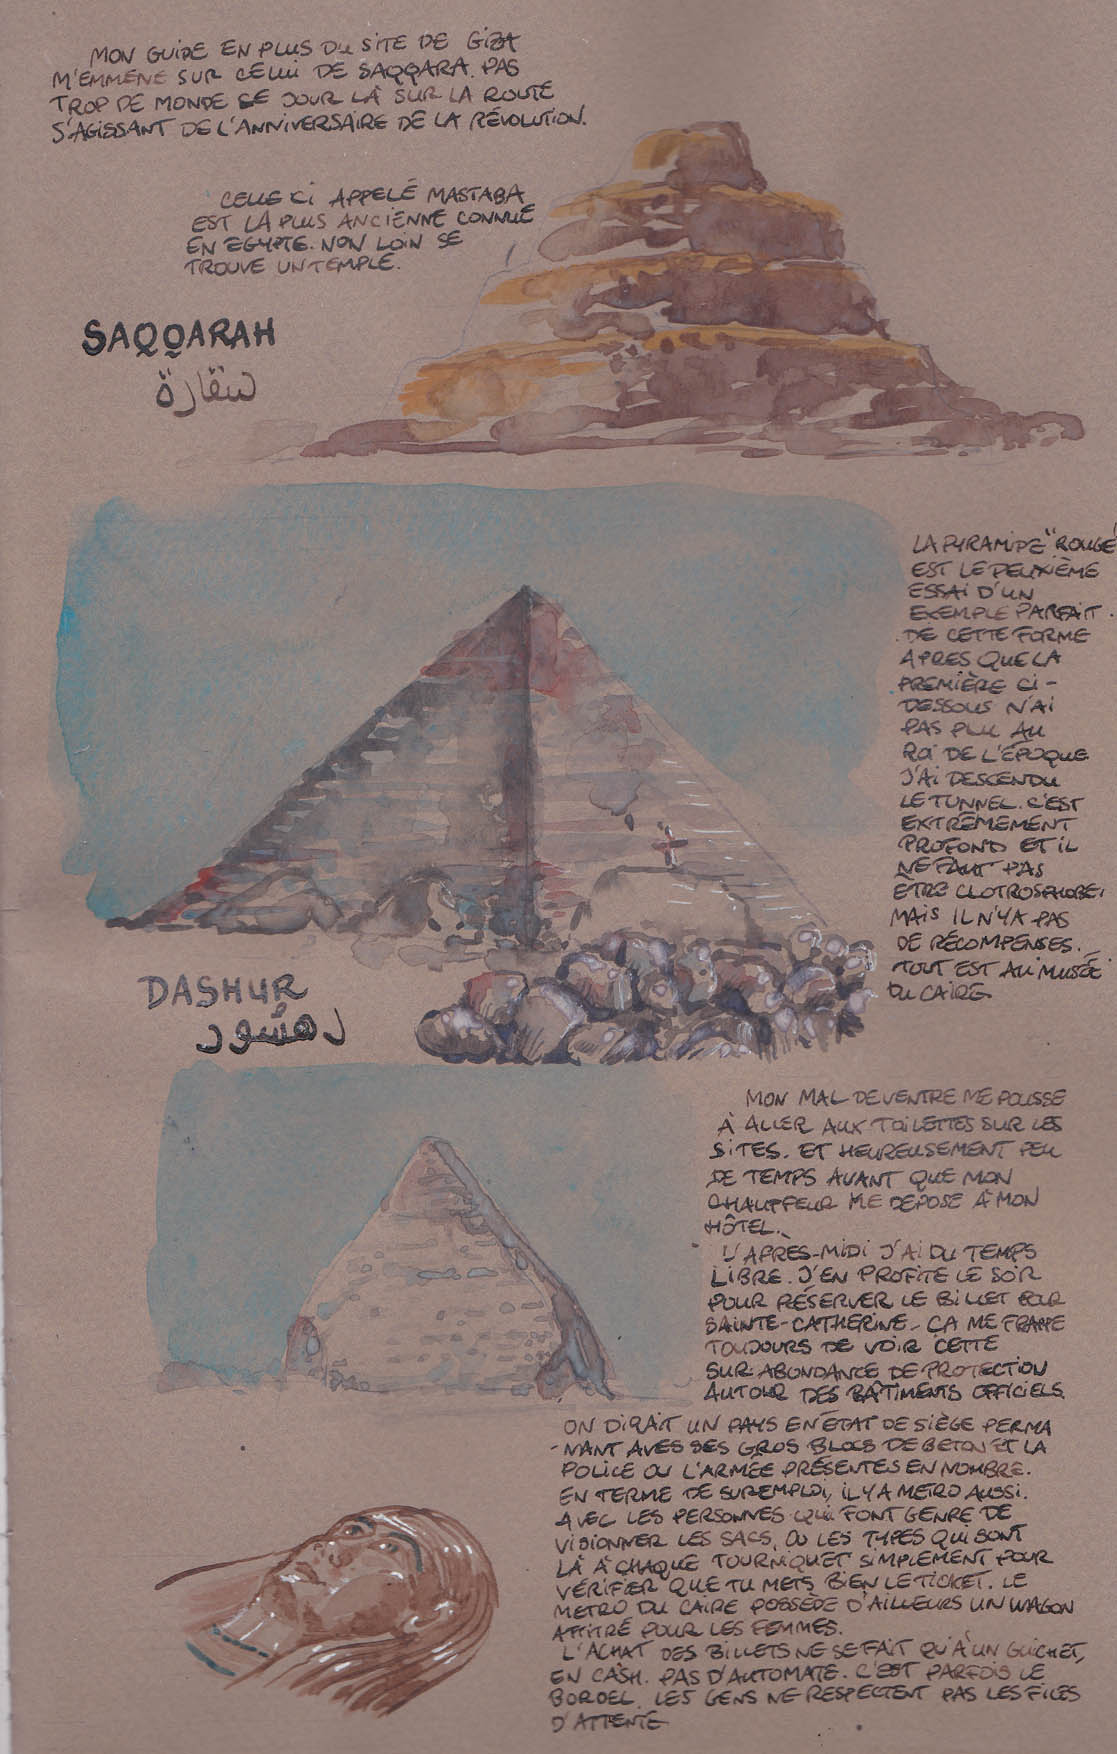 MON GUIDE EN PLUS DU SITE DE GIZA
M'EMMÈNE SUR CELUI DE SAQQARA. PAS
TROP DE MONDE CE JOUR LÀ SUR LA ROUTE
S'AGISSANT DE L'ANNIVERSAIRE DE LA RÉVOLUTION.
CELLE CI APPELÉ MASTABA
EST LA PLUS ANCIENNE CONNUE
EN EGYPTE. NON LOIN SE
TROUVE UN TEMPLE.
SAQQARAH
سقارة
LA PYRAMIDE "ROUGE"
EST LE DEUXIÈME
ESSAI D'UN
EXEMPLE PARFAIT
DE CETTE FORME
APRES QUE LA
PREMIÈRE CI-
DESSOUS N'AI
PAS PLU AU
ROI DE L'ÉPOQUE
J'AI DESCENDU
LE TUNNEL. C'EST
EXTRÊMEMENT
PROFOND ET IL
NE FAUT PAS
ÊTRE CLOTROSPHOBE,
MAIS IL N'Y A PAS
DE RÉCOMPENSES.
TOUT EST AU MUSÉE
DU CAIRE.
DASHUR
دهشور
MON MAL DE VENTRE ME POUSSE
À ALLER AUX TOILETTES SUR LES
SITES. ET HEUREUSEMENT PEU
DE TEMPS AVANT QUE MON
CHAUFFEUR ME DÉPOSE À MON
HÔTEL.
L'APRÈS-MIDI J'AI DU TEMPS
LIBRE. J'EN PROFITE LE SOIR
POUR RÉSERVER LE BILLET POUR
SAINTE-CATHERINE. ÇA ME FRAPPE
TOUJOURS DE VOIR CETTE
SURABONDANCE DE PROTECTION
AUTOUR DES BÂTIMENTS OFFICIELS.
ON DIRAIT UN PAYS EN ÉTAT DE SIÈGE PERMA
-NANT AVES SES GROS BLOCS DE BETON ET LA
POLICE OU L'ARMÉE PRÉSENTES EN NOMBRE.
EN TERME DE SUREMPLOI, IL Y A METRO AUSSI.
AVEC LES PERSONNES QUI FONT GENRE DE
VISIONNER LES SACS, OU LES TYPES QUI SONT
LÀ À CHAQUE TOURNIQUET SIMPLEMENT POUR
VÉRIFIER QUE TU METS BIEN LE TICKET. LE
METRO DU CAIRE POSSÈDE D'AILLEURS UN WAGON
ATTITRÉ POUR LES FEMMES.
L'ACHAT DES BILLETS NE SE FAIT QU'À UN GUICHET,
EN CASH. PAS D'AUTOMATE. C'EST PARFOIS LE
BORDEL. LES GENS NE RESPECTENT PAS LES FILES
D'ATTENTE